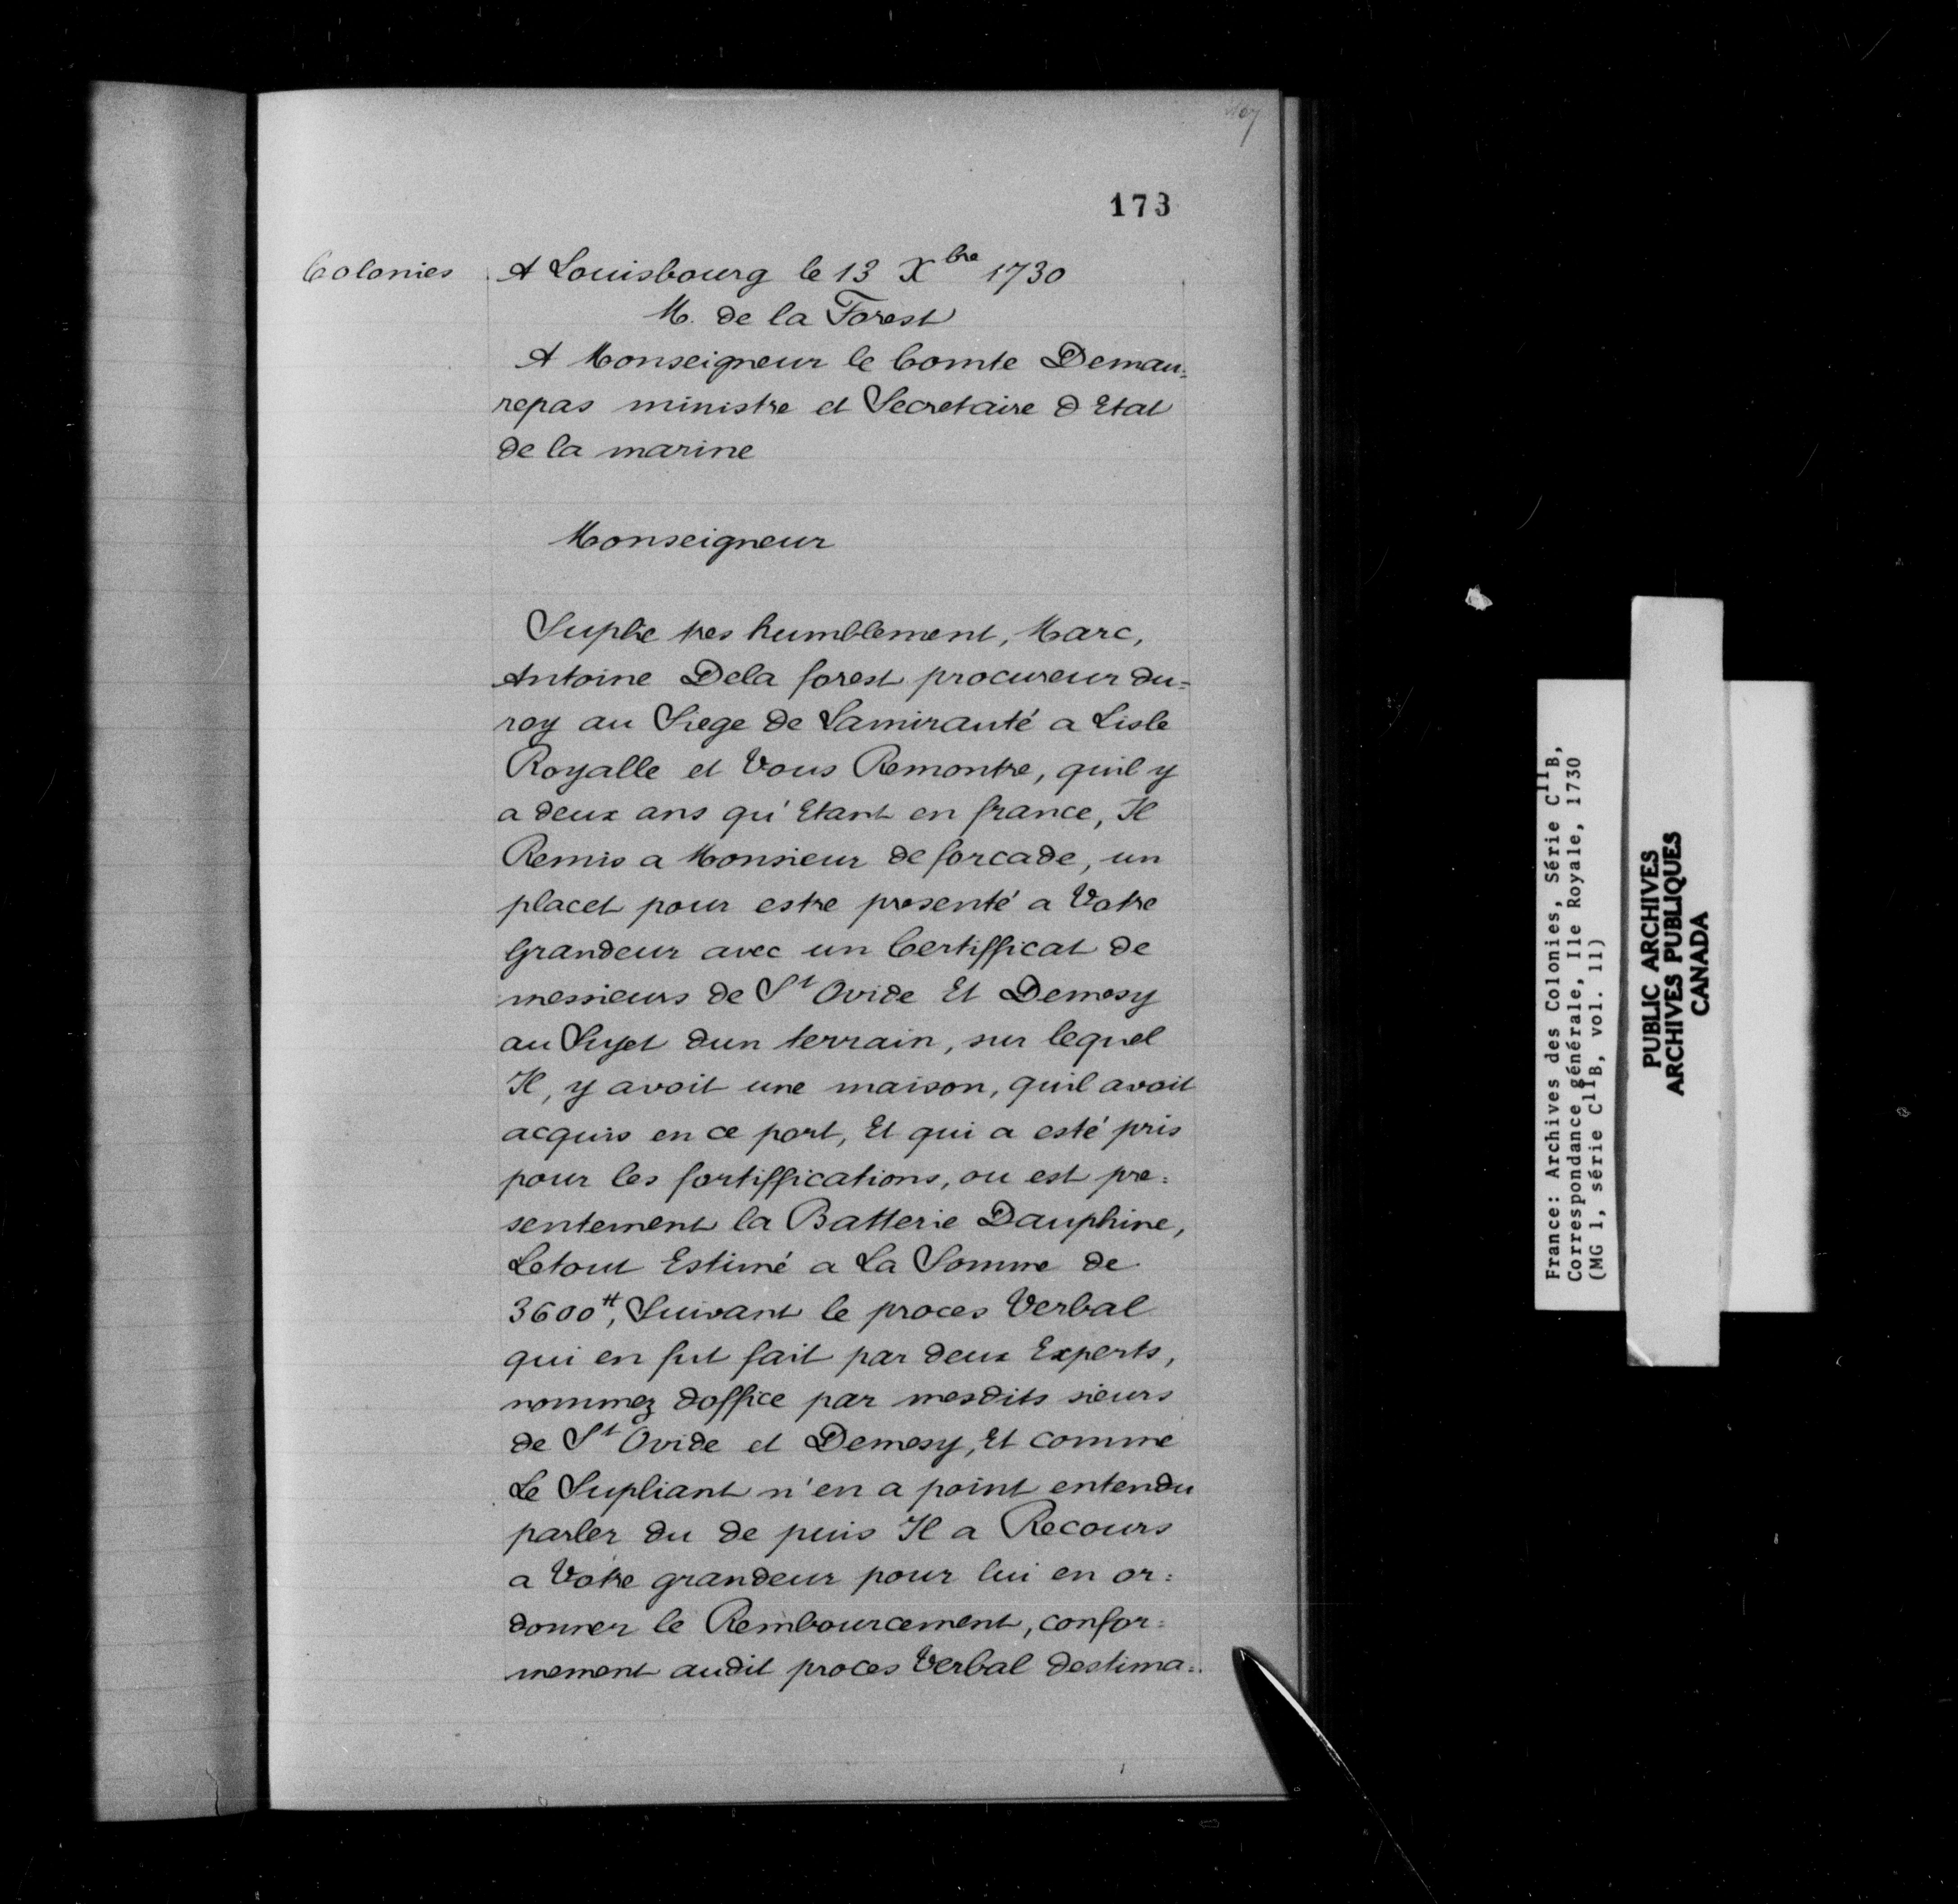 173
Colonies A Louisbourg le 13 Xbre 1730
M. de la Forest
A Monseigneur le Comte Demau=
repas ministre et Secretaire d Etat
de la marine
Monseigneur
Suplie tres humblement, Marc,
Antoine Dela forest procureur du=
roy au Siege de Lamirauté a Lisle
Royalle et Vous Remontre, quil y
a deux ans qu'Etant en france, Il
Remis a Monsieur de forcade, un
placet pour estre presenté a Votre
Grandeur avec un Certifficat de
messieurs de St Ovide Et Demesy
au Sujet dun terrain, sur lequel
Il, y avoit une maison, quil avoit
acquis en ce port, Et qui a esté pris
pour les fortiffications, ou est pre=
sentement la Batterie Dauphine,
Letout Estimé a La Somme de
3600#, Suivant le proces Verbal
qui en fut fait par deux Experts,
nommez doffice par mesdits sieurs
de St Ovide et Demesy, Et comme
Le Supliant n'en a point entendu
parler du de puis Il a Recours
a Votre grandeur pour lui en or=
donner le Rembourcement, confor=
mement audit proces Verbal destima=
France: Archives des Colonies, Série C11B,
Correspondance générale, Ile Royale, 1730
(MG 1, série C11B, vol. 11)
PUBLIC ARCHIVES
ARCHIVES PUBLIQUES
CANADA